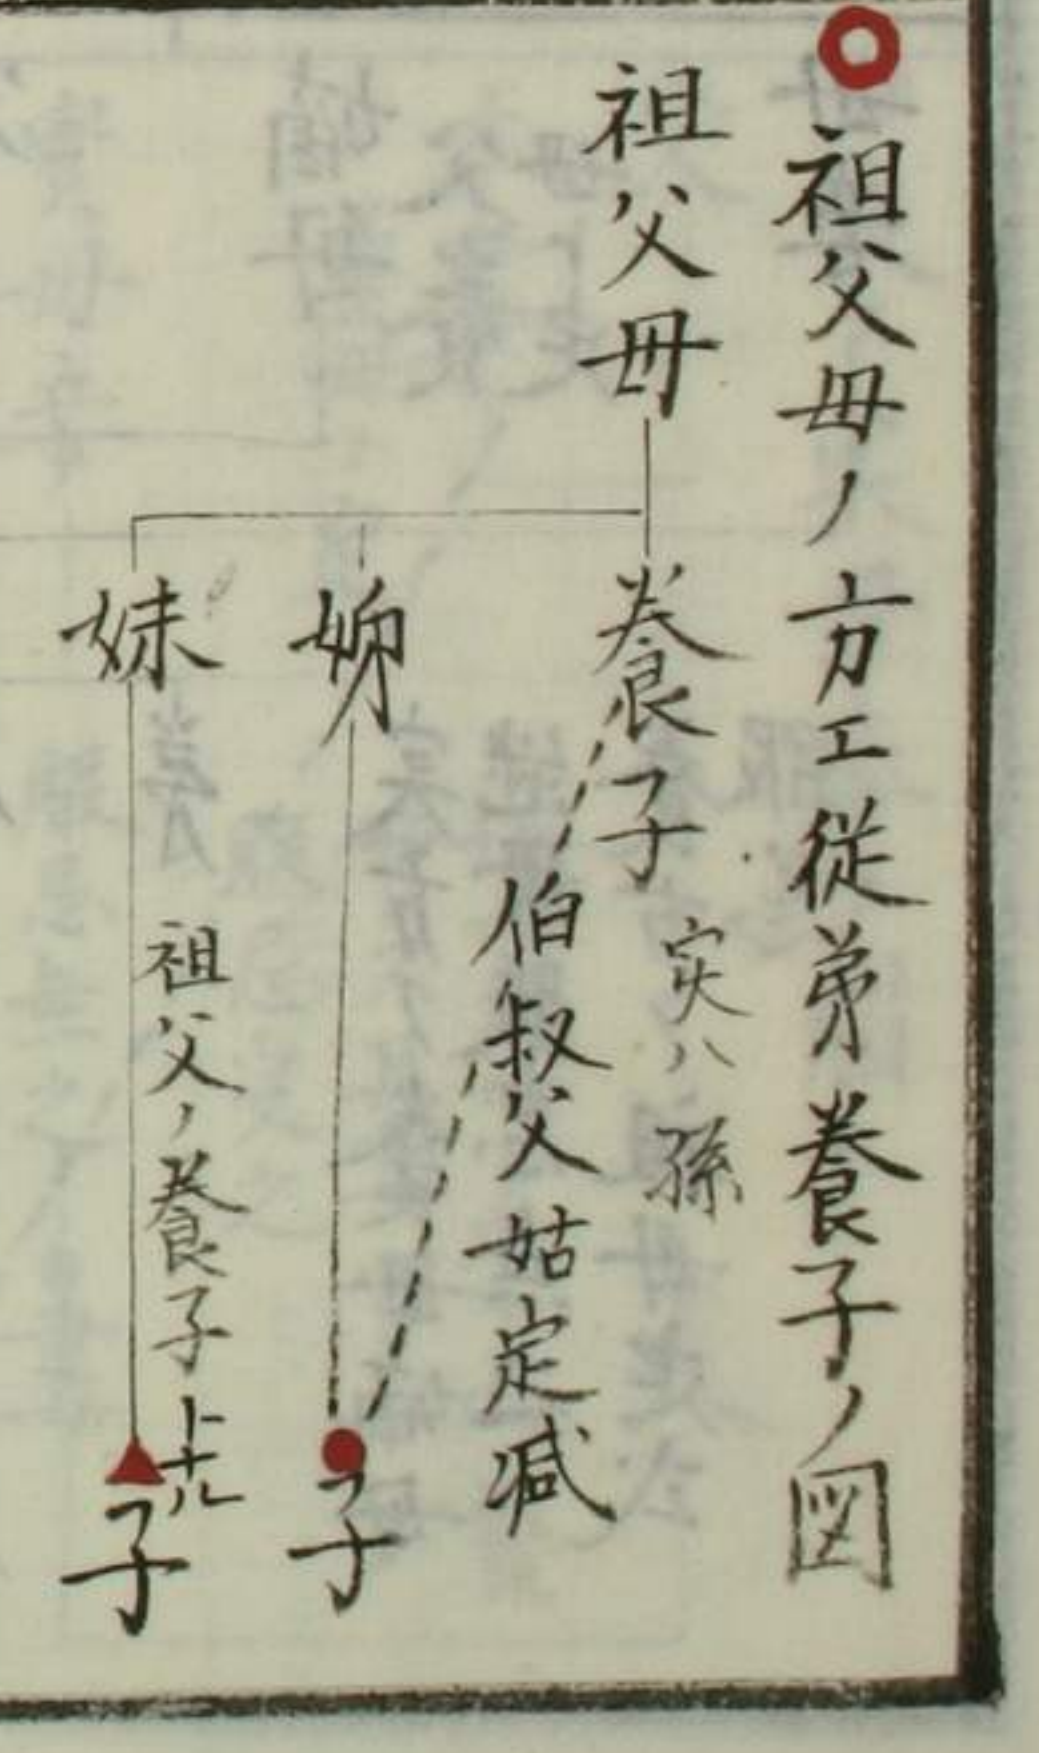 祖父母ノ方エ従弟養子ノ図
祖父母
養子
実ハ孫
伯叔父姑定減
姉
子
妹
祖父ノ養子トナル
子